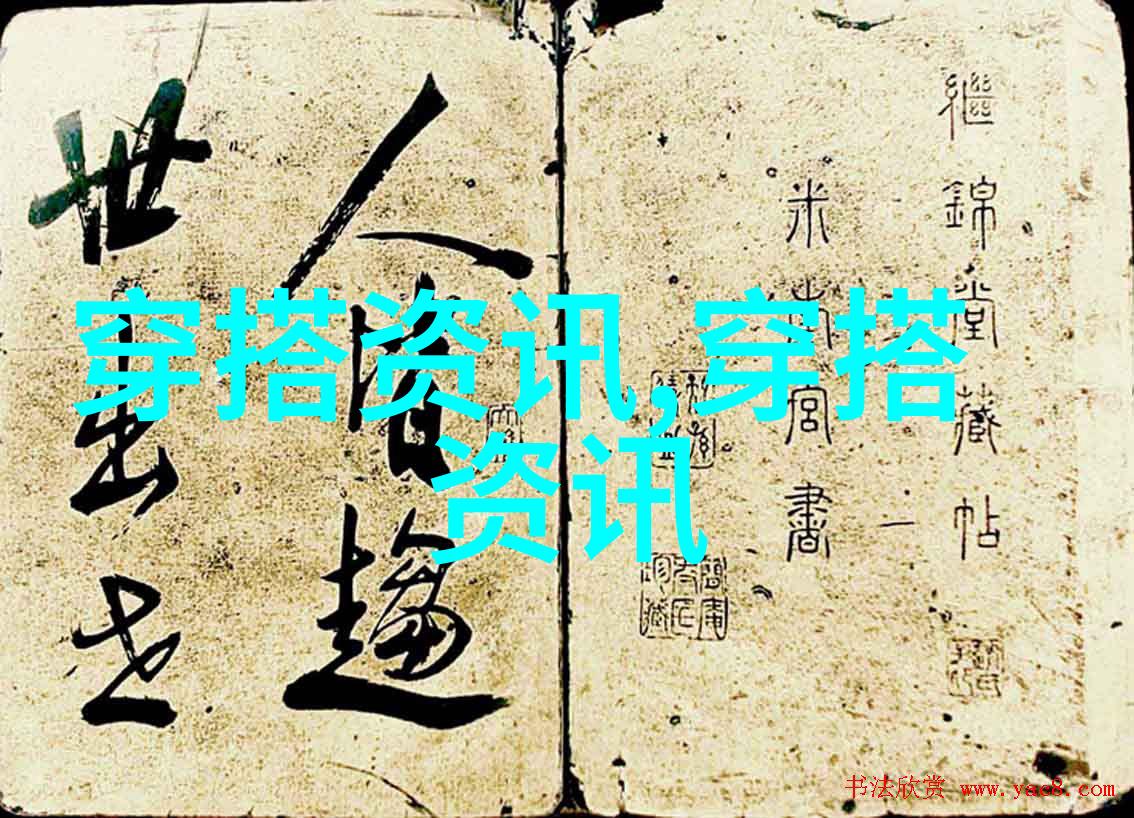 穿搭资讯,穿搭
资讯
繼錦堂藏帖
米南宮書
一
人
趨
世出世
书法欣赏 www.yac8.com